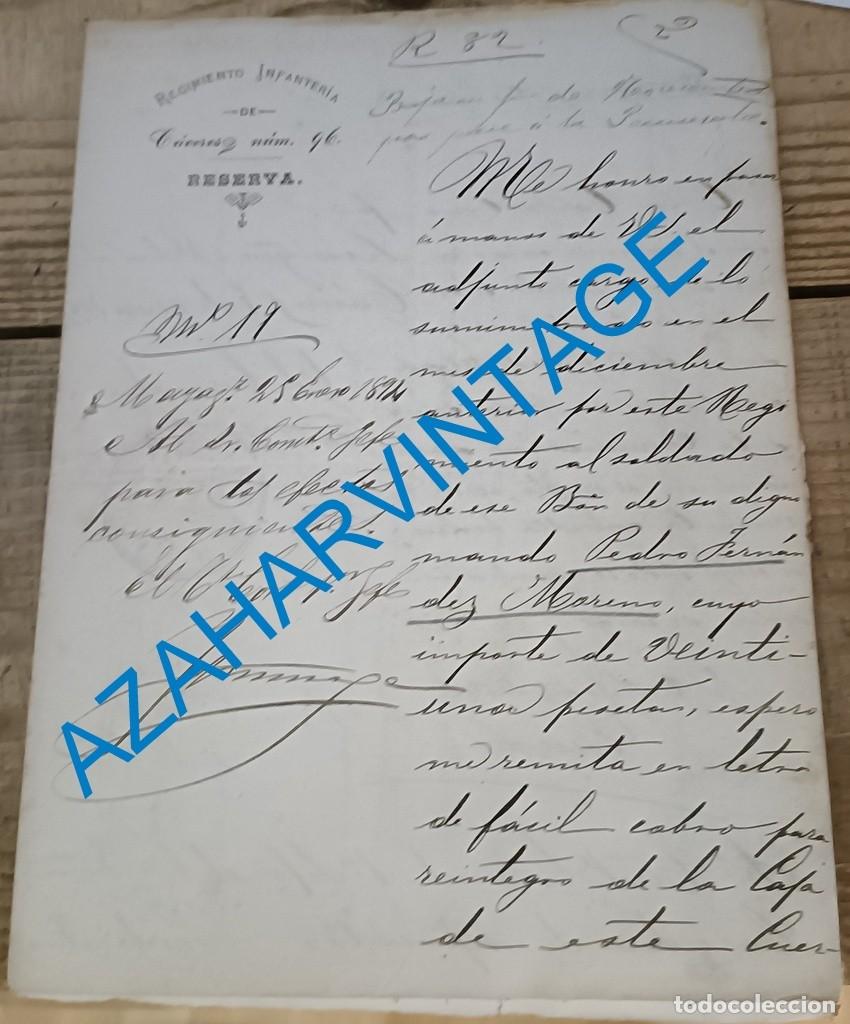 R 82.
2º
REGIMIENTO INFANTERÍA
DE
Cáceres núm. 96.
RESERVA.
pase á la
Me honro en pasar
á manos de V.S. el
adjunto cargo de lo
suministrado en el
mes de diciembre
anterior por este Regi
miento al soldado
de ese Bón de su digno
mando Pedro Fernán
dez Moreno, cuyo
importe de Veinti-
una pesetas, espero
me remita en letra
de fácil cobro para
reintegro de la Caja
de este Cuer-
Nº 19
25 Enero 1894
Al Sr. Comte. Jefe
para los efectos
consiguientes.
El T. Col. Jefe
AZAHARVINTAGE
todocoleccion